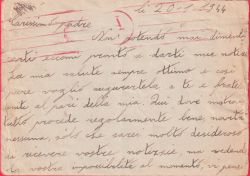 li 20-1-1944
Carissimo padre
Non potendo mai dimenti
carti eccomi pronto a darti mie notizie
La mia salute sempre ottima e così
pure voglio augurartela a te e fratel
al pari della mia. Qui dove mi trovo
tutto procede regolarmente bene, novità
nessuna, solo che sarei molto desideroso
di ricevere vostre notizie ma
la vostra impossibilità al momento, vi